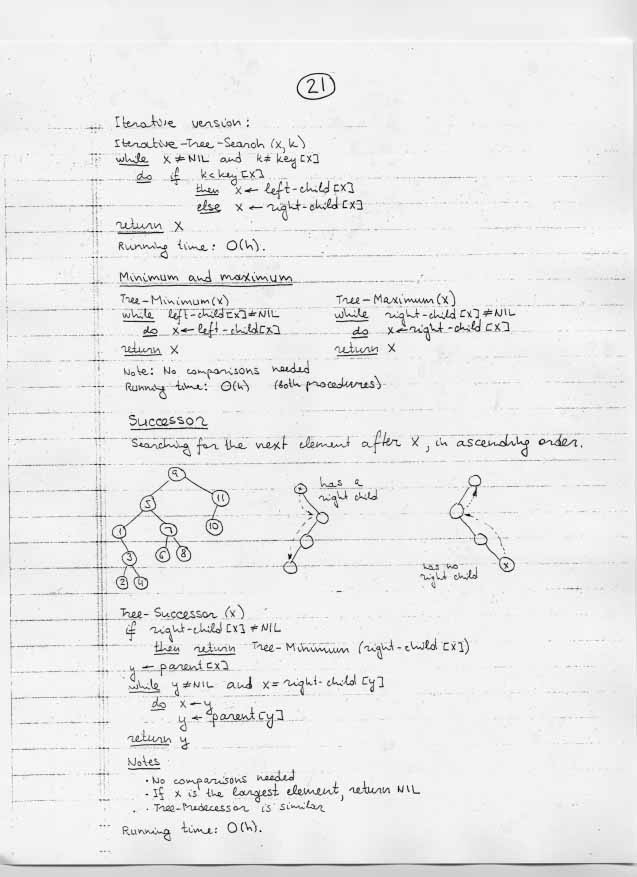 21
Iterative version:
Iterative-Tree-Search (x, k)
while x ≠ NIL and k ≠ key[x]
do if k < key[x]
then x ← left-child[x]
else x ← right-child[x]
return x
Running time: O(h).
Minimum and maximum
Tree-Minimum(x)
while left-child[x] ≠ NIL
do x ← left-child[x]
return x
Tree-Maximum(x)
while right-child[x] ≠ NIL
do x ← right-child[x]
return x
Note: No comparisons needed
Running time: O(h) (both procedures).
Successor
Searching for the next element after x, in ascending order.
9
5 11
1 7 10
3 6 8
2 4
x has a
right child
has no
right child
x
Tree-Successor (x)
if right-child[x] ≠ NIL
then return Tree-Minimum (right-child[x])
y ← parent[x]
while y ≠ NIL and x = right-child[y]
do x ← y
y ← parent[y]
return y
Notes
· No comparisons needed
· If x is the largest element, return NIL
· Tree-Predecessor is similar
Running time: O(h).